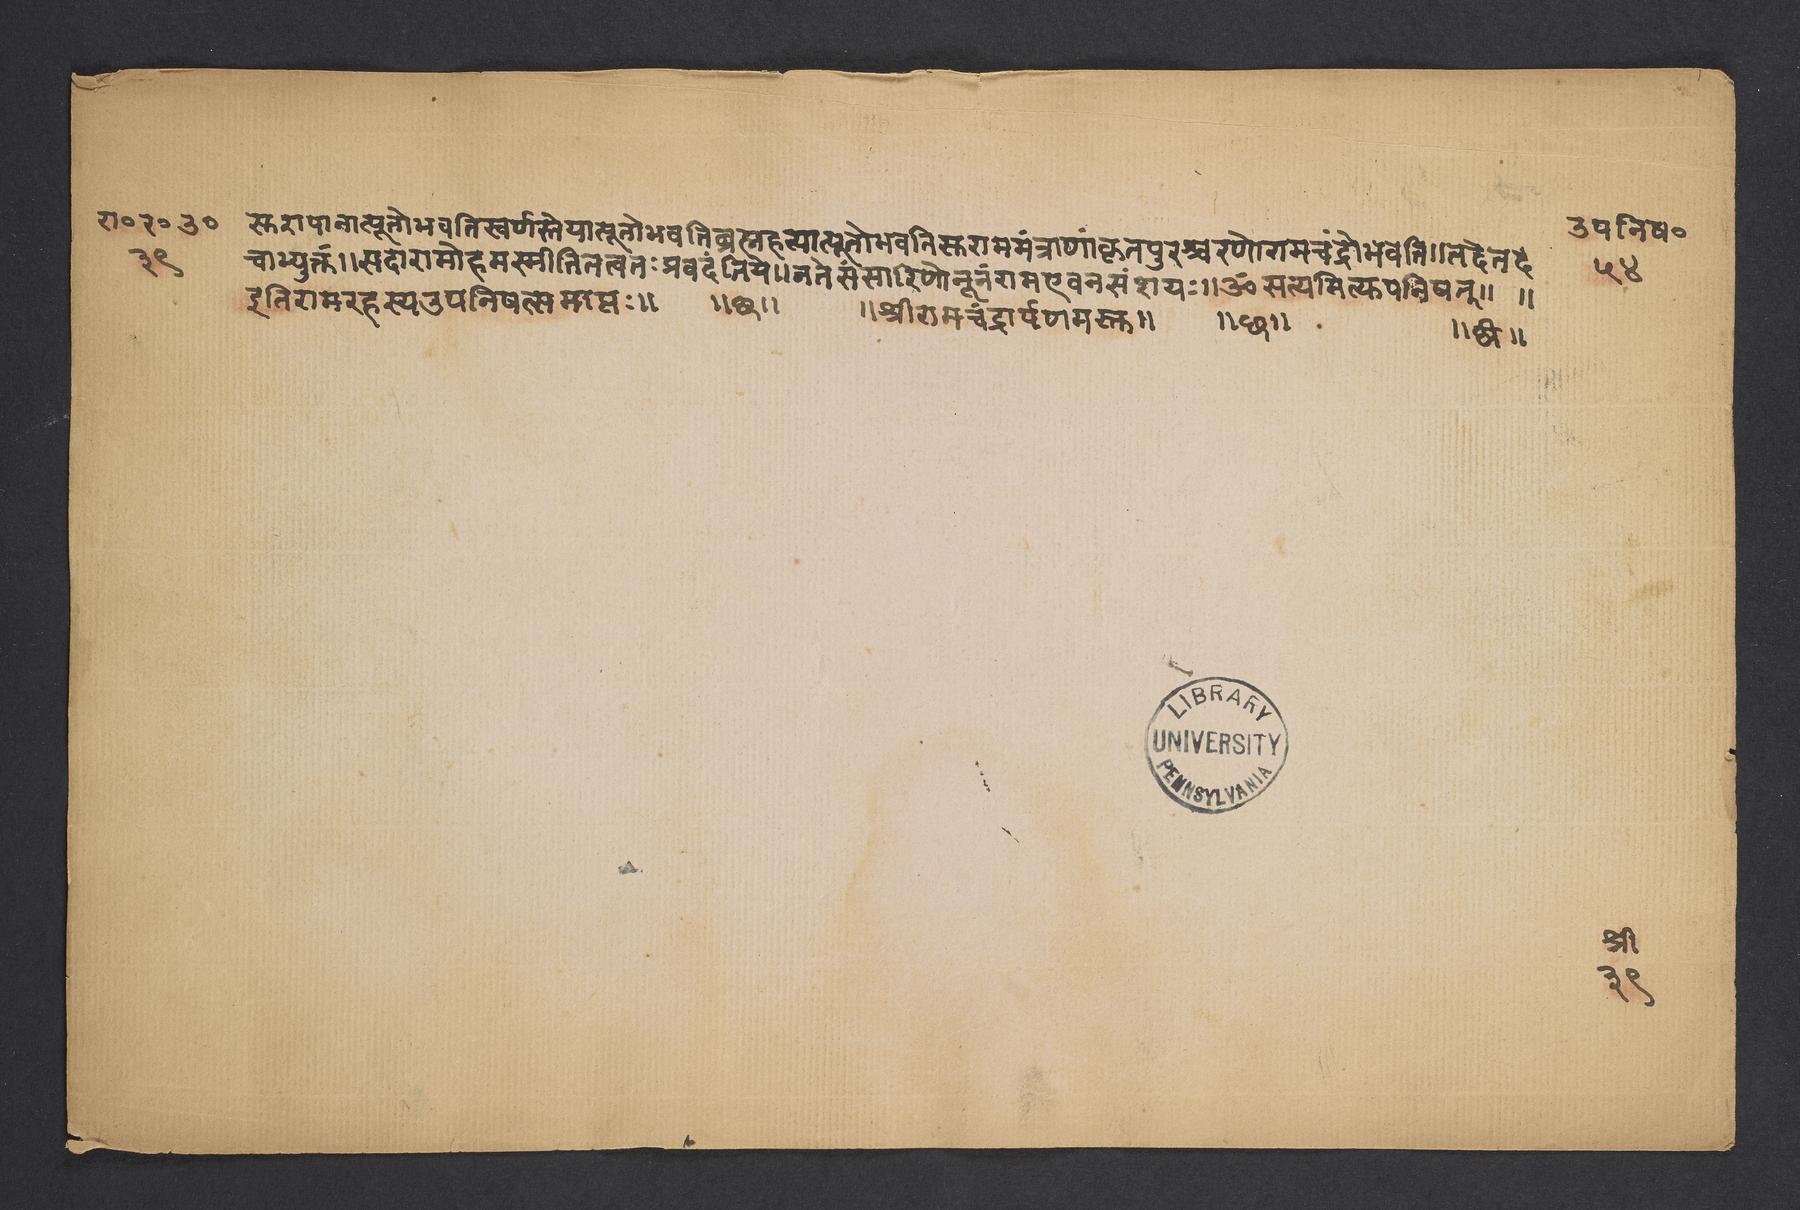 रा० र० उ०
३९
सुरापानात्पूतोभवतिस्वर्णस्तेयात्पूतोभवतिब्रह्महत्यात्पूतोभवतिसुराममंत्राणांकृतपुरश्चरणोरामचंद्रोभवेति॥तदेतदृ
चाभ्युक्तं॥सदारामोहमस्मीतितत्वतःप्रवदंतिये॥नतेसंसारिणोनूनंरामएवनसंशयः॥ॐसत्यमित्युपनिषत्॥ ॥
इतिरामरहस्यउपनिषत्समाप्तः॥ ॥छ॥ ॥श्रीरामचंद्रार्पणमस्तु॥ ॥छ॥ ॥श्री॥
उपनिष०
५४
LIBRARY
UNIVERSITY
PENNSYLVANIA
श्री
३९